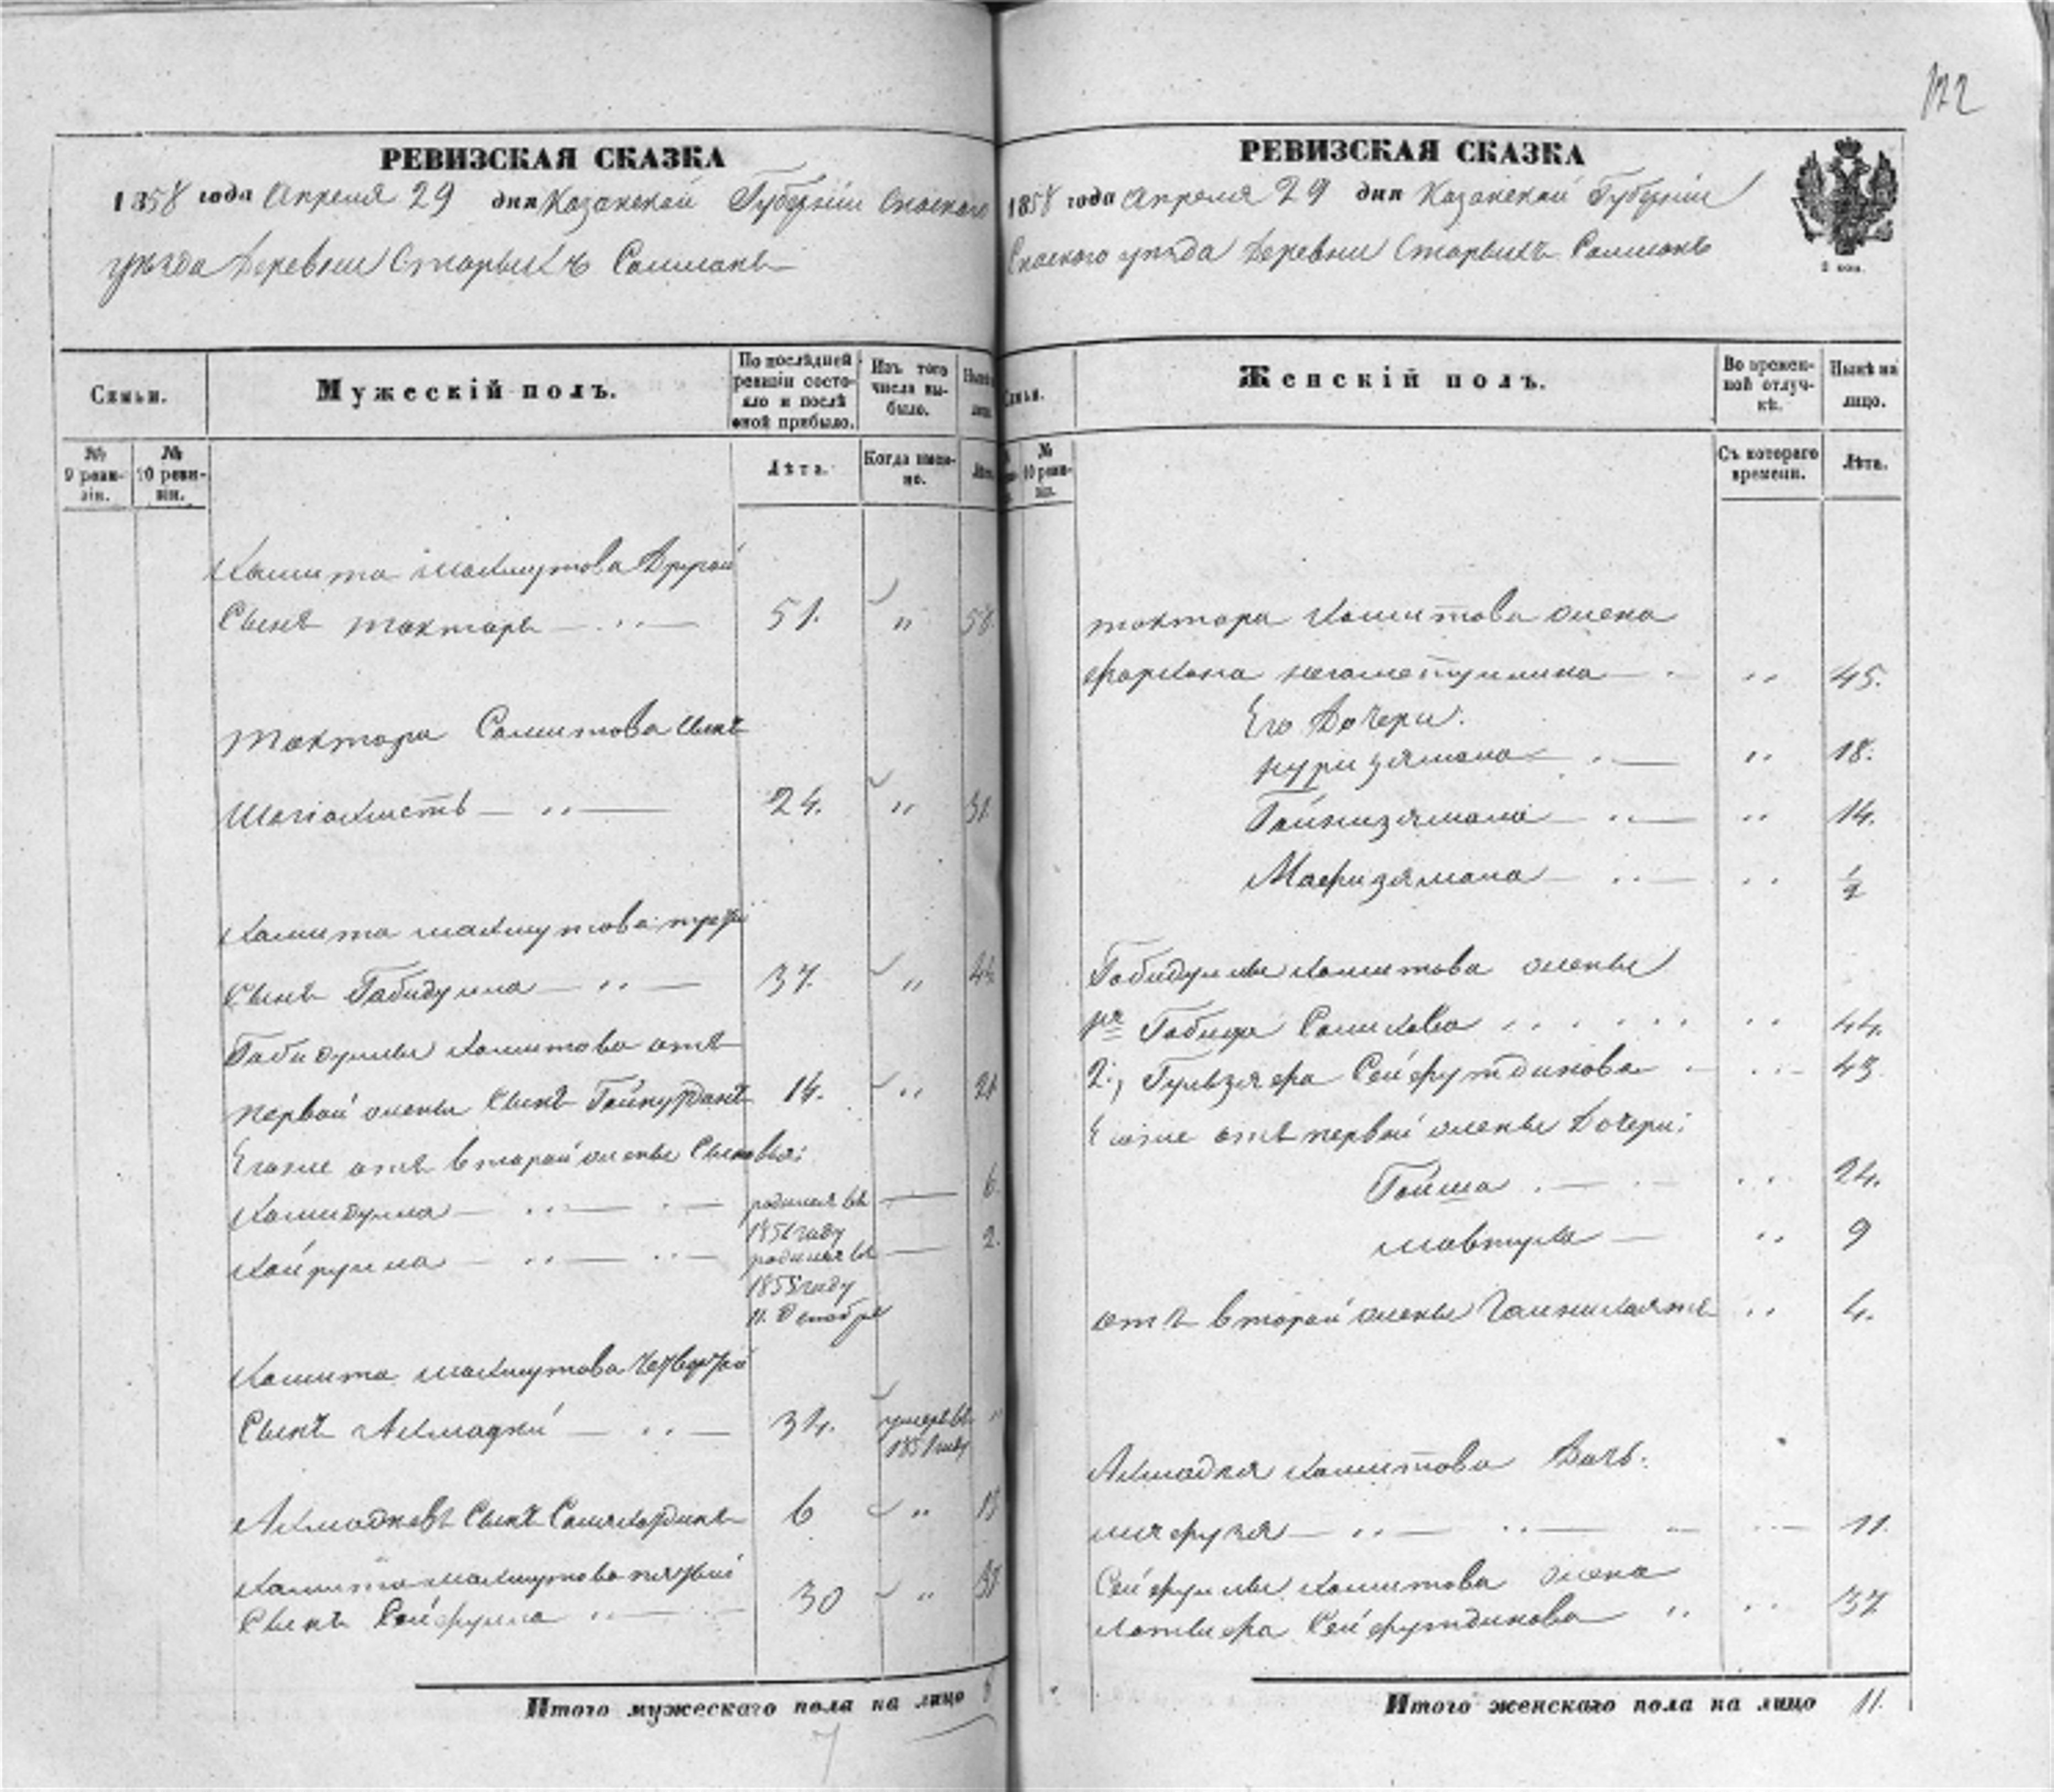 122
РЕВИЗСКАЯ СКАЗКА
1858 года Апреля 29 дня Казанской Губернiи Спаского
уѣзда Деревни Старыхъ Салманъ
Семьи.
Мужескiй полъ.
По послѣдней ревизiи состояло и послѣ оной прибыло.
Изъ того числа выбыло.
№ 9 ревизiи.
№ 10 ревизiи.
Лѣта.
Когда именно.
Хамита Махмутова Другой
Сынъ Тахтаръ 51. " 58
Тахтара Хамитова Сынъ
Шагiахметъ 24. " 31
Хамита Махмутова
Сынъ Габидулла 37. " 44
Габидуллы Хамитова отъ
первой жены Сынъ 14. " 21
Егоже отъ второй жены Сыновья:
Хамидулла родился въ 1851 году 6.
Хайрулла родился въ 1855 году 11. Октября 2.
Хамита Махмутова четвертой
Сынъ Ахмадкий 34. умеръ въ 1851 году "
Ахмадкевъ Сынъ 6 " 13
Хамита Махмутова пятый
Сынъ Сейфулла 30 " 37
Итого мужескаго пола на лицо 8
7
РЕВИЗСКАЯ СКАЗКА
1858 года Апреля 29 дня Казанской Губернiи
Спаского уѣзда Деревни Старыхъ Салманъ
Женскiй полъ.
Во временной отлучкѣ.
Нынѣ на лицо.
№ 10 ревизiи.
Съ котораго времени.
Лѣта.
Тахтара Хамитова жена
Фархана " 45.
Его Дочери:
Нуризямала " 18.
Гайнизямала " 14.
Мафизямала " 1/2
Габидуллы Хамитова жены
1я Габида 44.
2., Гульзяфа Сейфутдинова 43.
Егоже отъ первой жены Дочери:
Гайша 24.
Мавтуха " 9
отъ второй жены " 4.
Ахмадкия Хамитова Дочь.
11.
Сейфуллы Хамитова жена
Латыфа Сейфутдинова " 37
Итого женскаго пола на лицо 11.